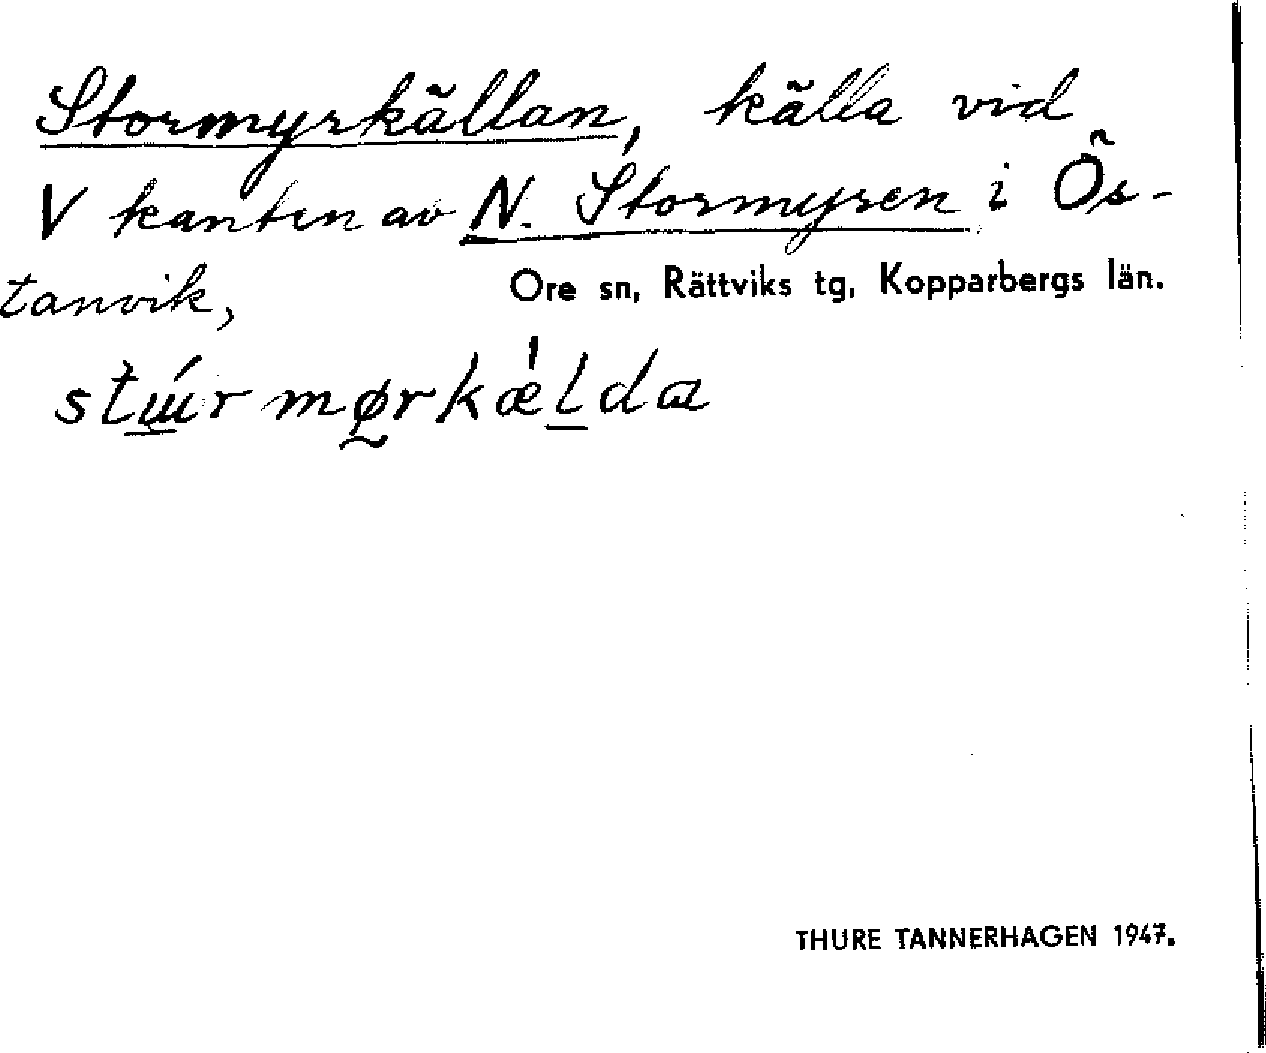 Stormyrkällan, källa vid
V kanten av N. Stormyren i Ös-
tanvik, Ore sn, Rättviks tg, Kopparbergs län.
stɯ́r mørkǽldɑ
THURE TANNERHAGEN 1947.